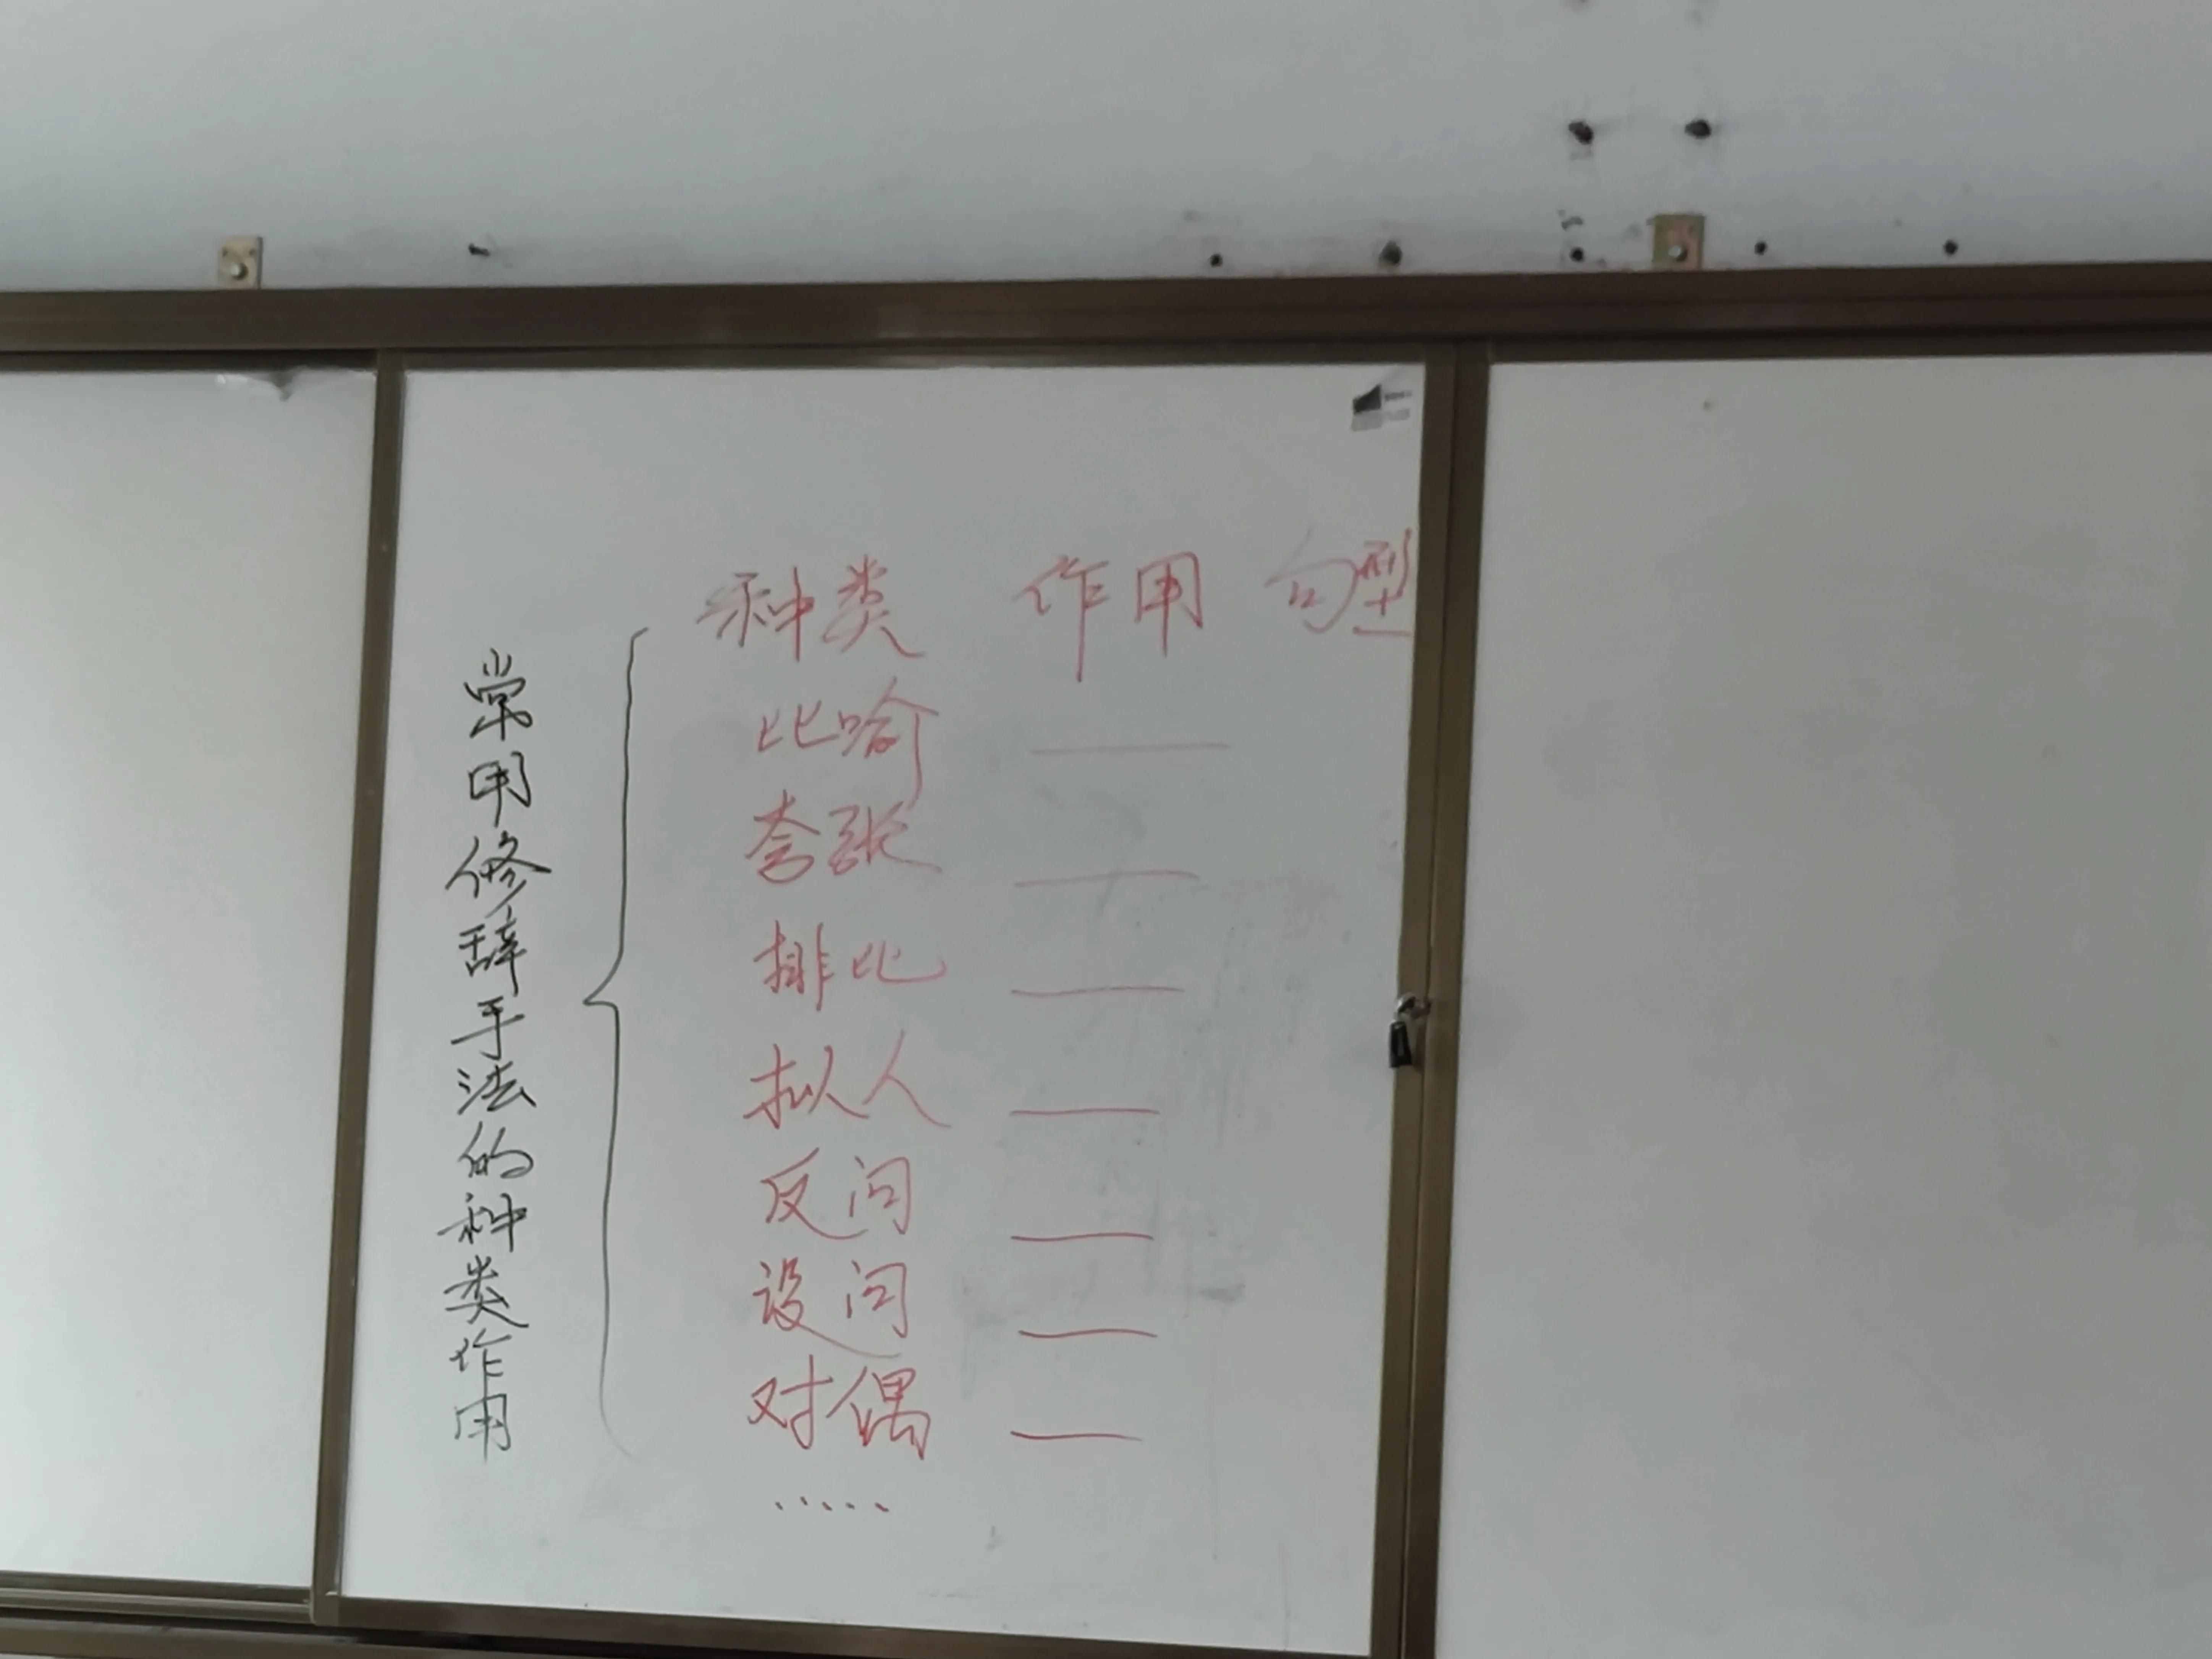 常用修辞手法的种类作用
种类 作用 句型
比喻
夸张
排比
拟人
反问
设问
对偶
……